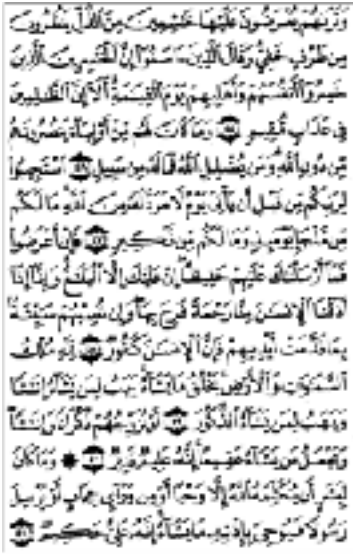 وَتَرَىٰهُمْ يُعْرَضُونَ عَلَيْهَا خَٰشِعِينَ مِنَ ٱلذُّلِّ يَنظُرُونَ
مِن طَرْفٍ خَفِىٍّ وَقَالَ ٱلَّذِينَ ءَامَنُوٓا۟ إِنَّ ٱلْخَٰسِرِينَ ٱلَّذِينَ
خَسِرُوٓا۟ أَنفُسَهُمْ وَأَهْلِيهِمْ يَوْمَ ٱلْقِيَٰمَةِ أَلَآ إِنَّ ٱلظَّٰلِمِينَ
فِى عَذَابٍ مُّقِيمٍ ٤٥ وَمَا كَانَ لَهُم مِّنْ أَوْلِيَآءَ يَنصُرُونَهُم
مِّن دُونِ ٱللَّهِ وَمَن يُضْلِلِ ٱللَّهُ فَمَا لَهُۥ مِن سَبِيلٍ ٤٦ ٱسْتَجِيبُوا۟
لِرَبِّكُم مِّن قَبْلِ أَن يَأْتِىَ يَوْمٌ لَّا مَرَدَّ لَهُۥ مِنَ ٱللَّهِ مَا لَكُم
مِّن مَّلْجَإٍ يَوْمَئِذٍ وَمَا لَكُم مِّن نَّكِيرٍ ٤٧ فَإِنْ أَعْرَضُوا۟
فَمَآ أَرْسَلْنَٰكَ عَلَيْهِمْ حَفِيظًا إِنْ عَلَيْكَ إِلَّا ٱلْبَلَٰغُ وَإِنَّآ إِذَآ
أَذَقْنَا ٱلْإِنسَٰنَ مِنَّا رَحْمَةً فَرِحَ بِهَا وَإِن تُصِبْهُمْ سَيِّئَةٌۢ
بِمَا قَدَّمَتْ أَيْدِيهِمْ فَإِنَّ ٱلْإِنسَٰنَ كَفُورٌ ٤٨ لِّلَّهِ مُلْكُ
ٱلسَّمَٰوَٰتِ وَٱلْأَرْضِ يَخْلُقُ مَا يَشَآءُ يَهَبُ لِمَن يَشَآءُ إِنَٰثًا
وَيَهَبُ لِمَن يَشَآءُ ٱلذُّكُورَ ٤٩ أَوْ يُزَوِّجُهُمْ ذُكْرَانًا وَإِنَٰثًا
وَيَجْعَلُ مَن يَشَآءُ عَقِيمًا إِنَّهُۥ عَلِيمٌ قَدِيرٌ ٥٠ ۞ وَمَا كَانَ
لِبَشَرٍ أَن يُكَلِّمَهُ ٱللَّهُ إِلَّا وَحْيًا أَوْ مِن وَرَآئِ حِجَابٍ أَوْ يُرْسِلَ
رَسُولًا فَيُوحِىَ بِإِذْنِهِۦ مَا يَشَآءُ إِنَّهُۥ عَلِىٌّ حَكِيمٌ ٥١